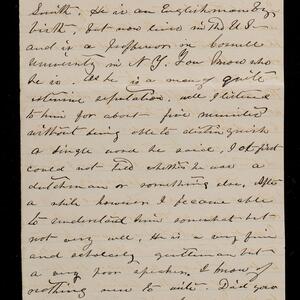 Smith. He is an Englishman by
birth, but now lives in the U.S.
and is a Professor in Cornell
University in N.Y. You know who
he is. As he is a man of quite
extensive reputation, well I listened
to him for about five minutes
without being able to distinguish
a single word he said, I at first
could not tell whether he was a
dutchman or something else. After
a while however I became able
to understand him somewhat but
not very well. He is a very fine
and scholarly gentleman but
a very poor speaker. I know of
nothing new to write. Did you